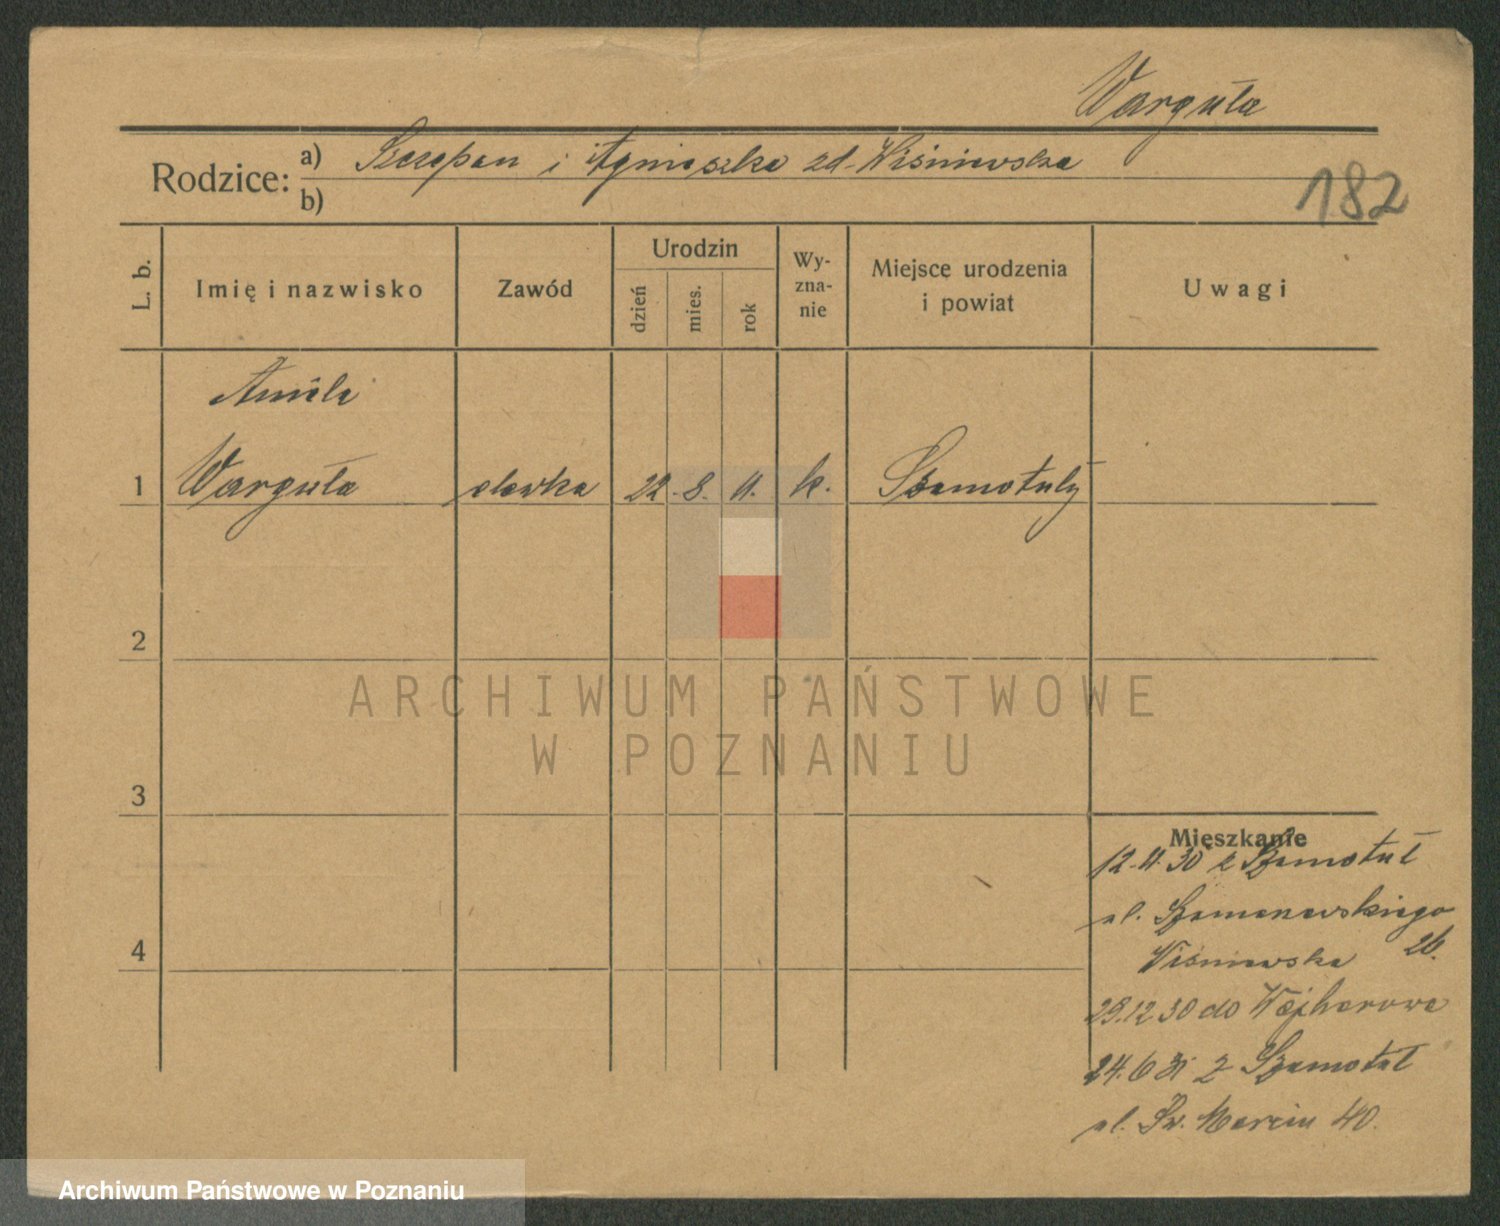 Warguła
Rodzice: a) Szczepan i Agnieszka zd. Wiśniewska
182
b)
L. b.
Imię i nazwisko
Zawód
Urodzin
dzień
mies.
rok
Wy-
zna-
nie
Miejsce urodzenia
i powiat
Uwagi
Aniela
1 Warguła 22. 8. 11. k. Szamotuły
2
ARCHIWUM PAŃSTWOWE
W POZNANIU
3
Mieszkanie
z Szamotuł
ul.
4
Wiśniewska 26.
29.12 30 do Wejherowa
24.6 31 z Szamotuł
ul. Św. Marcin 40.
Archiwum Państwowe w Poznaniu